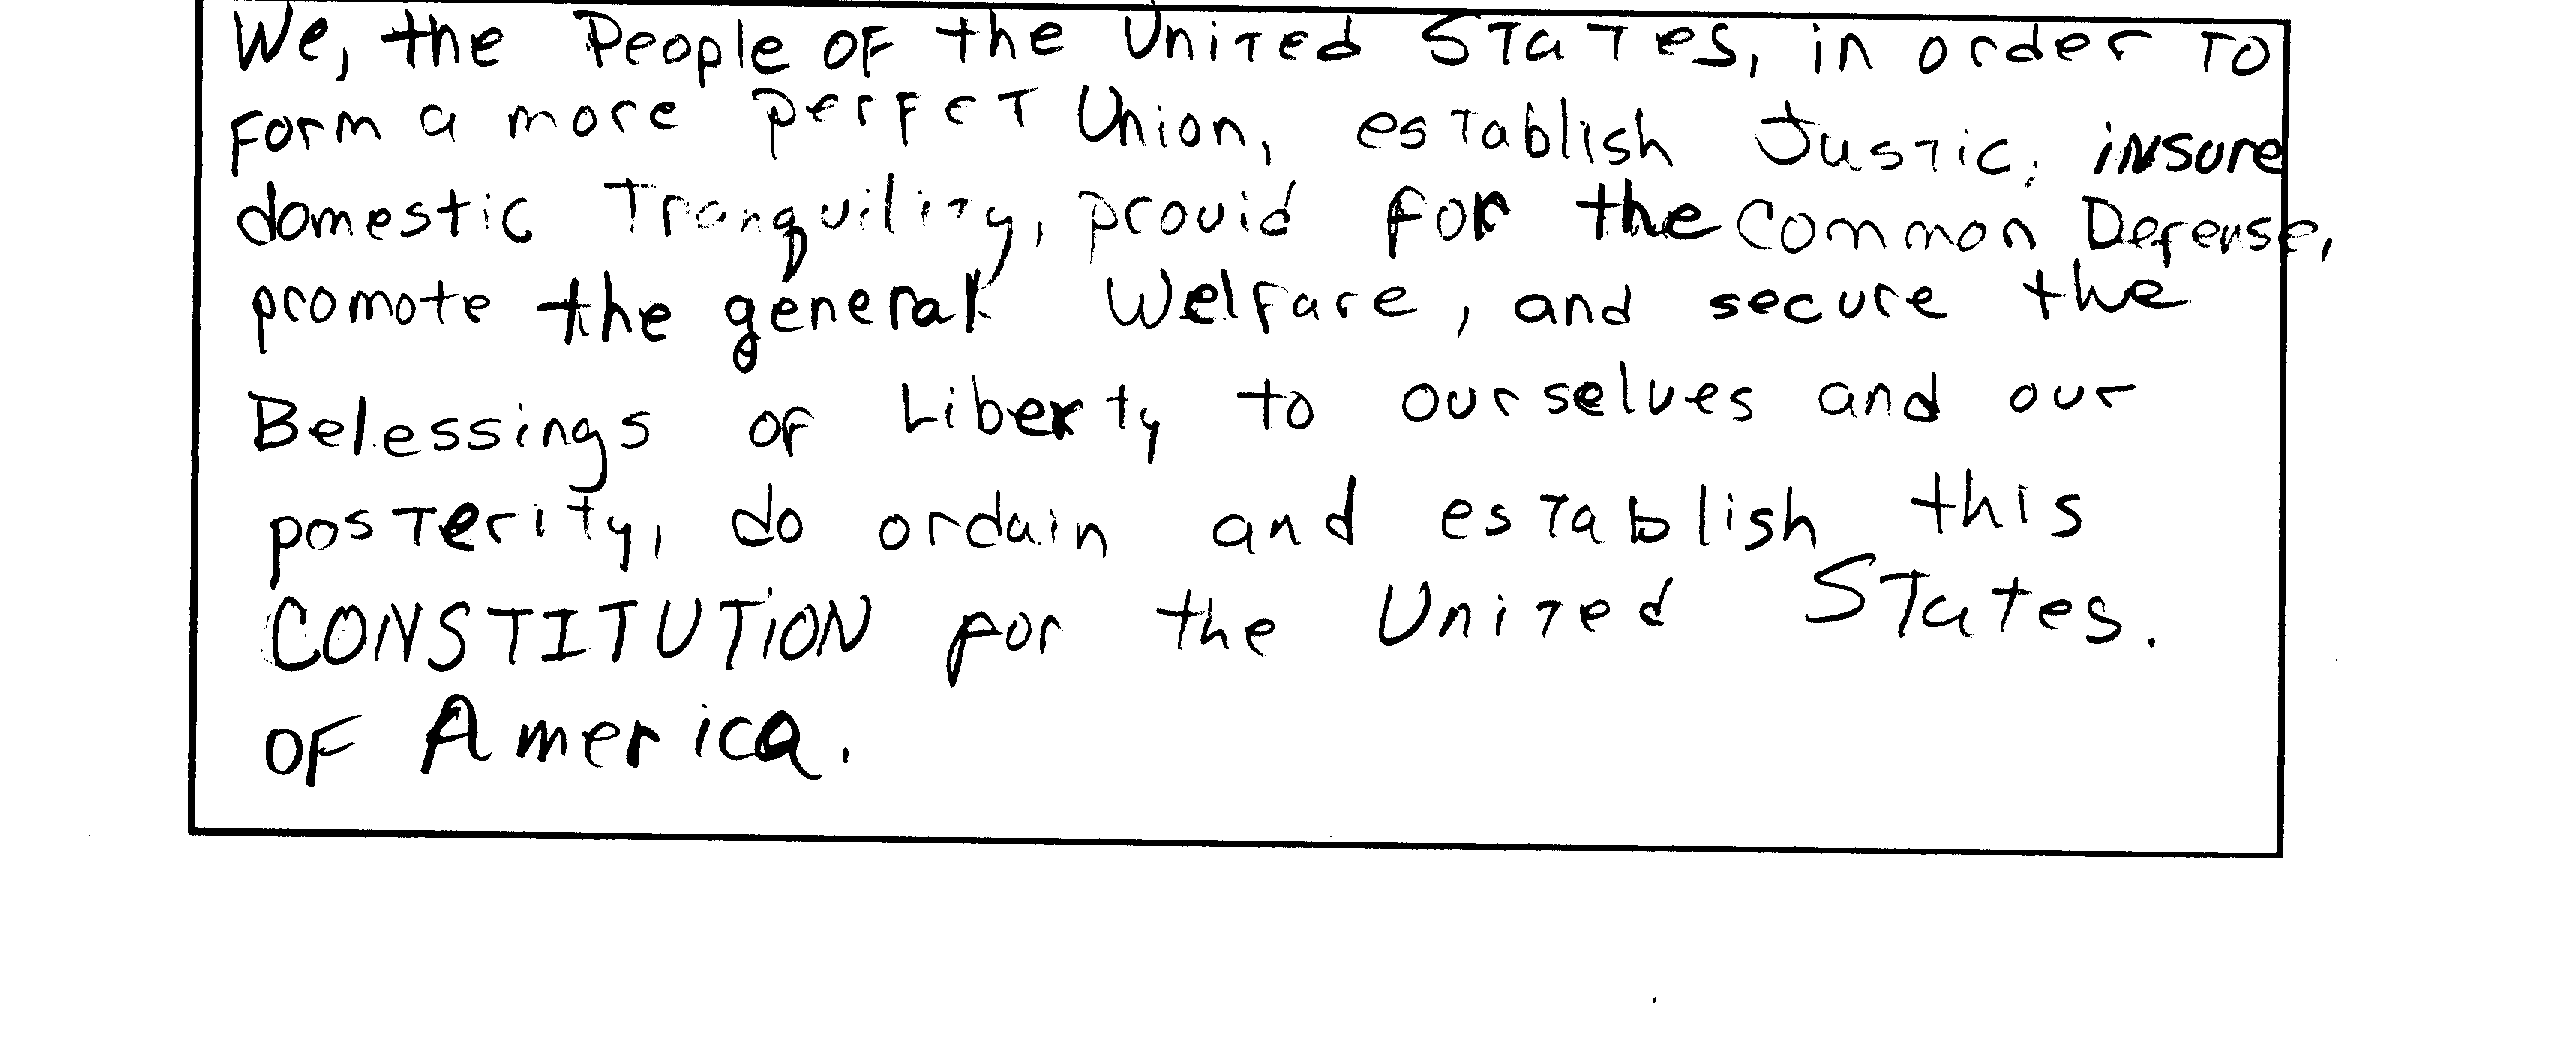 We, the People of the United States, in order to
form a more perfect Union, establish Justic, insure
domestic Tranquility, provid for the Common Defense,
promote the general Welfare, and secure the
Belessings of Liberty to ourselves and our
posterity, do ordain and establish this
CONSTITUTION for the United States.
of America.